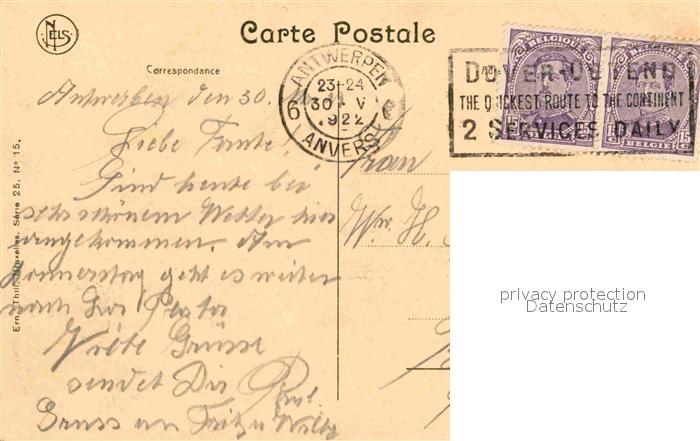 NELS
Carte Postale
Correspondance
ANTWERPEN
6 23-24 6
30 V
1922
ANVERS
DOVER-OSTEND
THE QUICKEST ROUTE TO THE CONTINENT
2 SERVICES DAILY
BELGIQUE
15 BELGIE 15
Antwerpen den 30.
Liebe Tante!
Sind heute bei
sehr schönem Wetter hier
angekommen. Am
Donnerstag geht es weiter
nach
Viele Grüsse
sendet Dir
Gruss an Fritz u Willy
Frau
Ww. H.
Ern. Thill, Bruxelles. Série 25, No 15.
privacy protection
Datenschutz